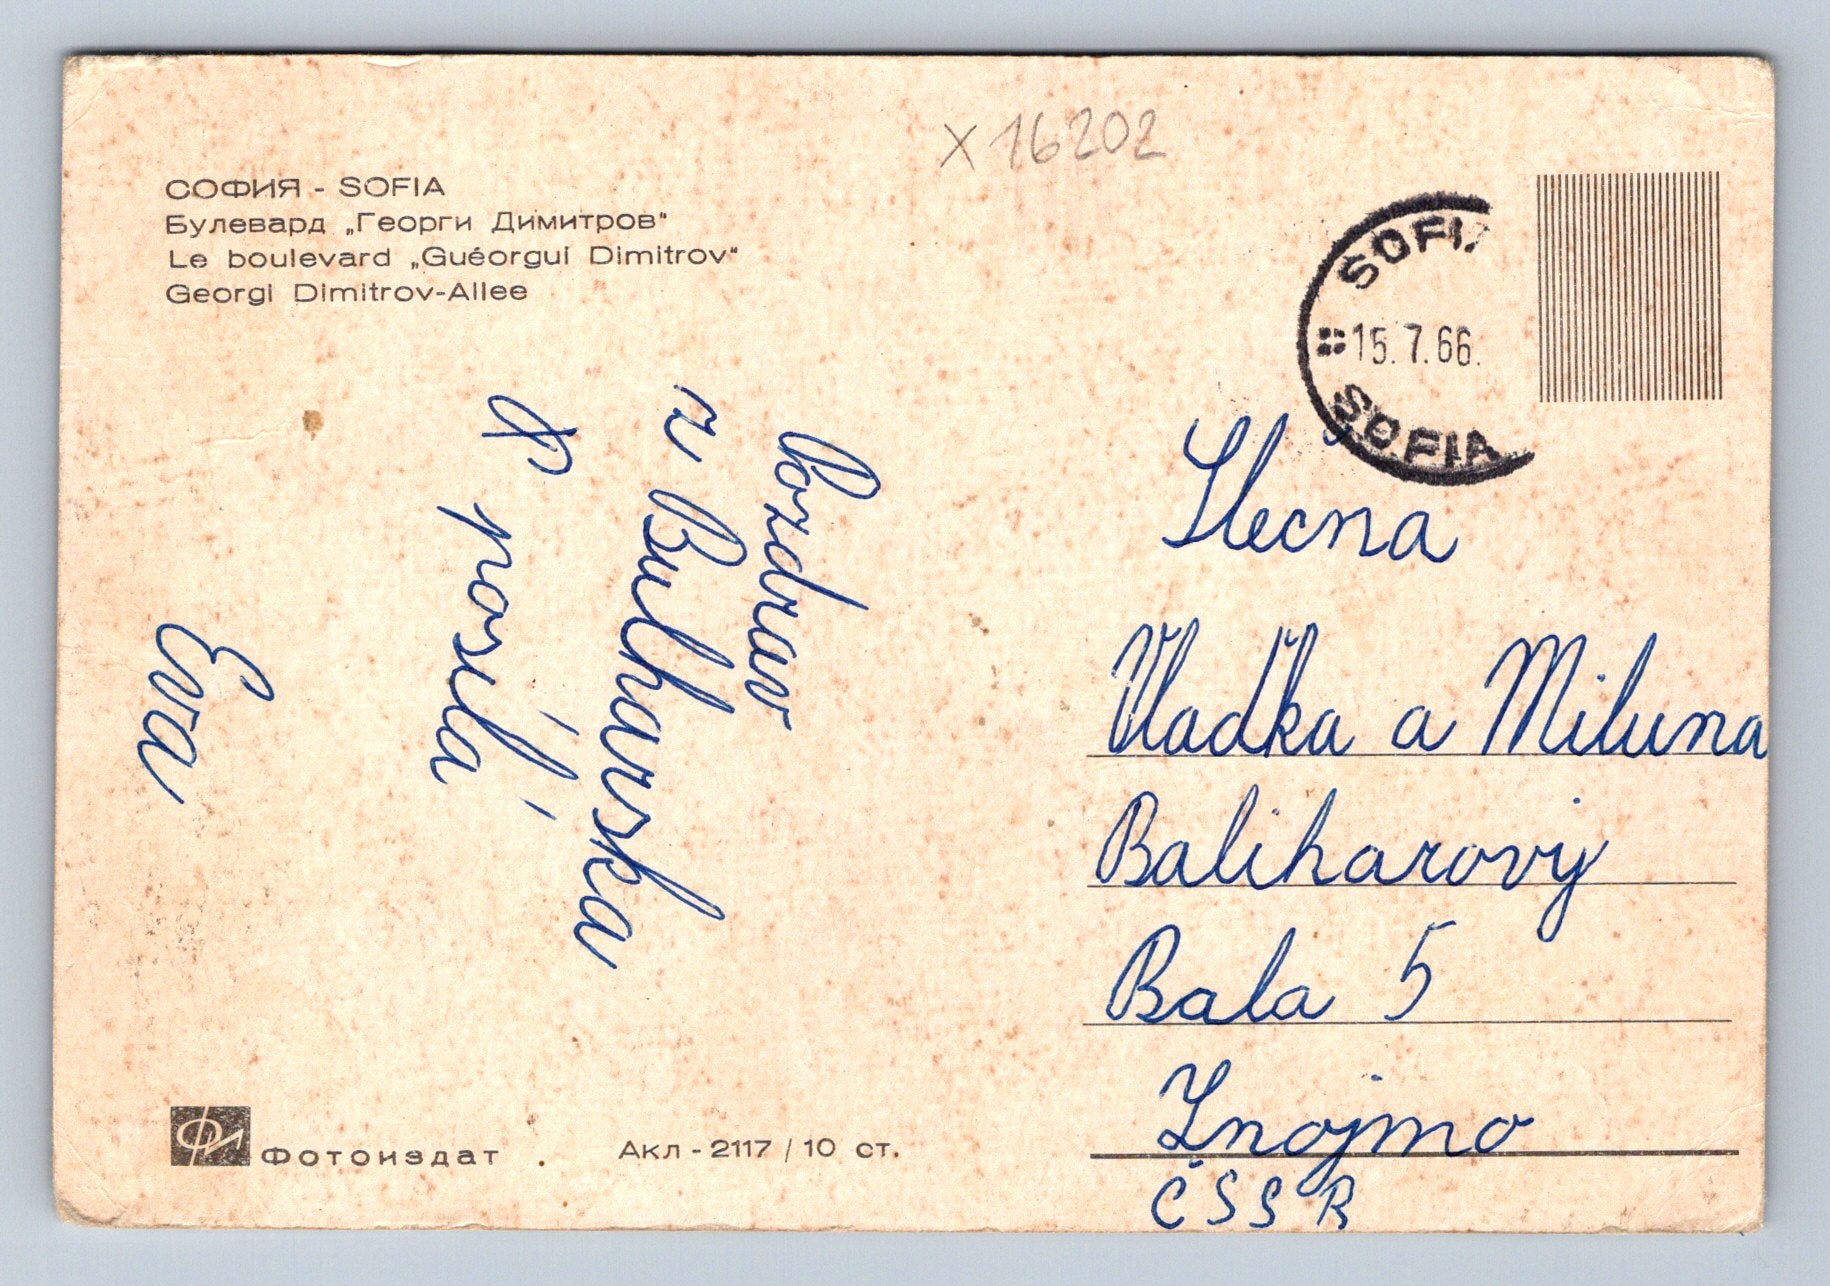 X 16202
СОФИЯ - SOFIA
Булевард „Георги Димитров“
Le boulevard „Guéorgui Dimitrov“
Georgi Dimitrov-Allee
SOFIA
15.7.66.
SOFIA
Pozdrav
z Bulharska
posílá
Eva
Slečna
Vlaďka a Miluna
Baliharovy
Bala 5
Znojmo
ČSSR
Фотоиздат
Акл - 2117 / 10 ст.